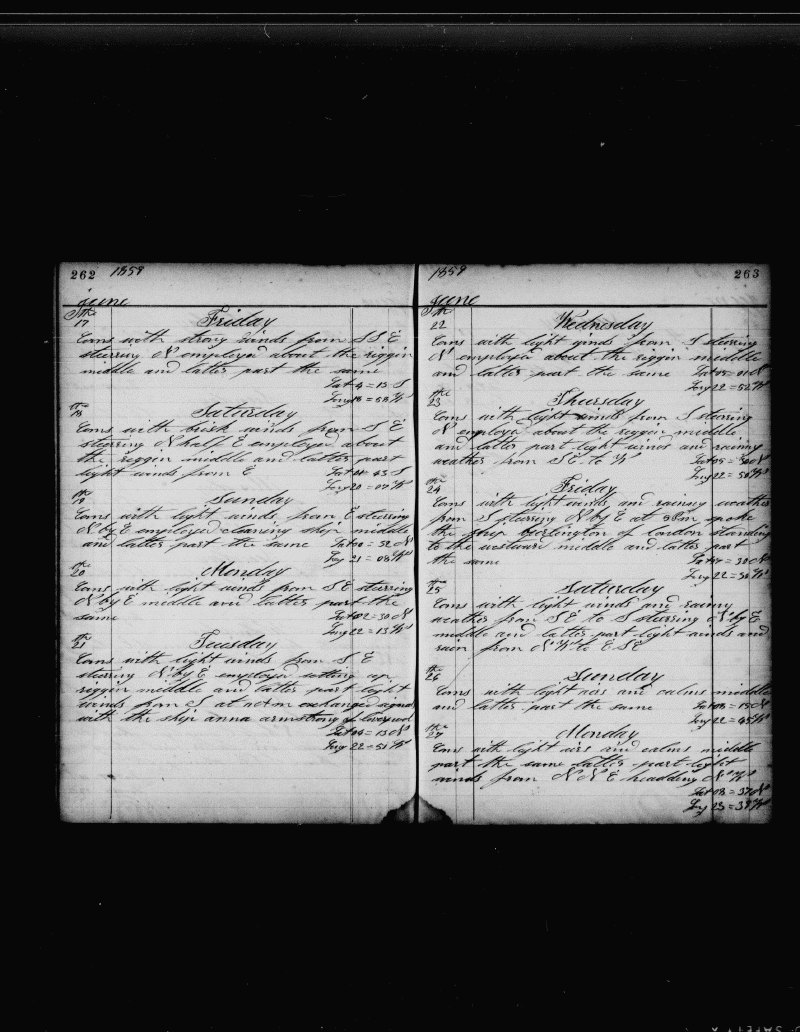 262 1859
june
The
17
Friday
Coms with strong winds from S S E
steering N employed about the riggin
middle and latter part the same
Lat 4 = 13 S
Long 18 = 58 W
The
18
Saturday
Coms with brisk winds from S E
steering N half E employed about
the riggin middle and latter part
light winds from E
Lat 01 = 43 S
Long 20 = 04 W
The
19
Sunday
Coms with light winds from E steering
N by E employed cleaning ship middle
and latter part the same Lat 00 = 32 N
Long 21 = 08 W
The
20
Monday
Coms with light winds from S E steering
N by E middle and latter part the
same Lat 02 = 30 N
Long 22 = 13 W
The
21
Tuesday
Coms with light winds from S E
steering N by E employed setting up
riggin middle and latter part light
winds from S at exchanged signals
with the ship anna armstrong of liverpool
Lat 04 = 13 N
Long 22 = 51 W
1859 263
june
The
22
Wednesday
Coms with light winds from S steering
N employed about the riggin middle
and latter part the same Lat 05 = 01 N
Long 22 = 52 W
The
23
Thursday
Coms with light winds from S steering
N employed about the riggin middle
and latter part light winds and rainny
weather from S E to W Lat 05 = 30 N
Long 22 = 50 W
The
24
Friday
Coms with light winds and rainny weather
from S steering N by E at spoke
the ship burlington of london standing
to the westward middle and latter part
the same Lat 07 = 30 N
Long 22 = 50 W
The
25
Saturday
Coms with light winds and rainny
weather from S E to S steering N by E
middle and latter part light winds and
rain from N W to E S E
The
26
Sunday
Coms with light airs and calms middle
and latter part the same Lat 08 = 15 N
Long 22 = 45 W
The
27
Monday
Coms with light airs and calms middle
part the same latter part light
winds from N N E headding N W
Lat 08 = 37 N
Long 23 = 39 W